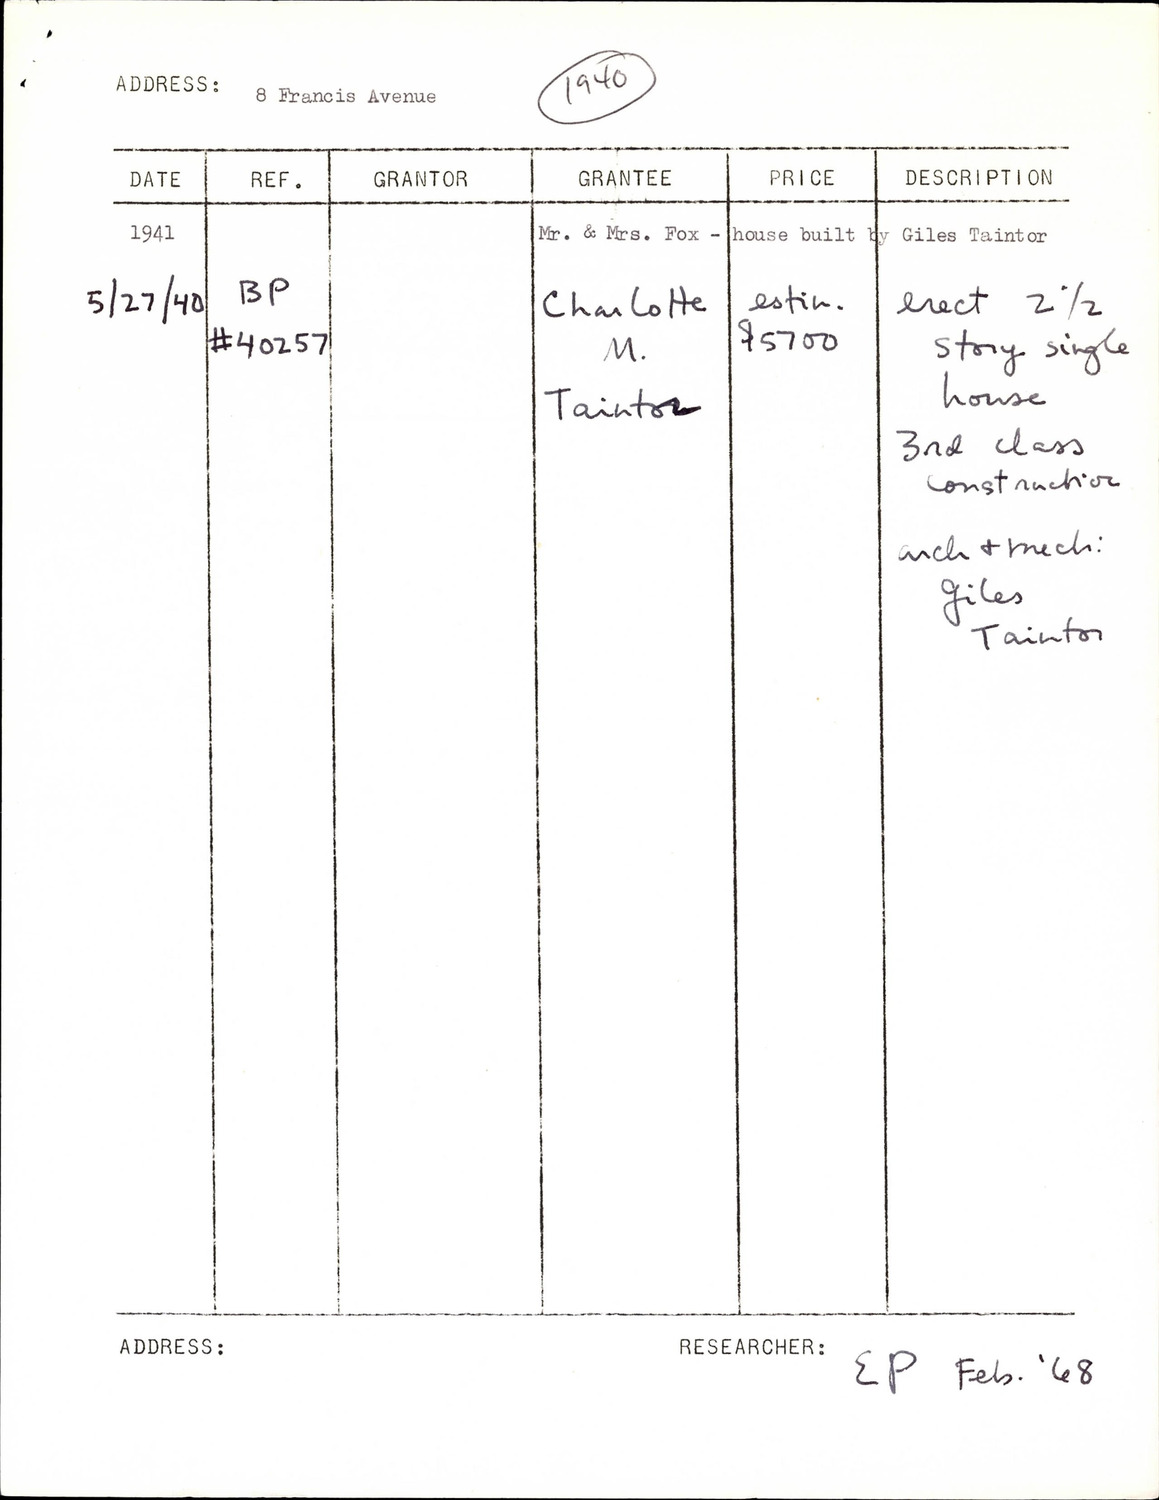 ADDRESS: 8 Francis Avenue
1940
DATE REF. GRANTOR GRANTEE PRICE DESCRIPTION
1941 Mr. & Mrs. Fox - house built by Giles Taintor
5/27/40 BP Charlotte estim. erect 2 1/2
#40257 M. $5700 story single
Taintor house
3rd class
construction
arch + mech:
Giles
Taintor
ADDRESS: RESEARCHER: EP Feb. '68